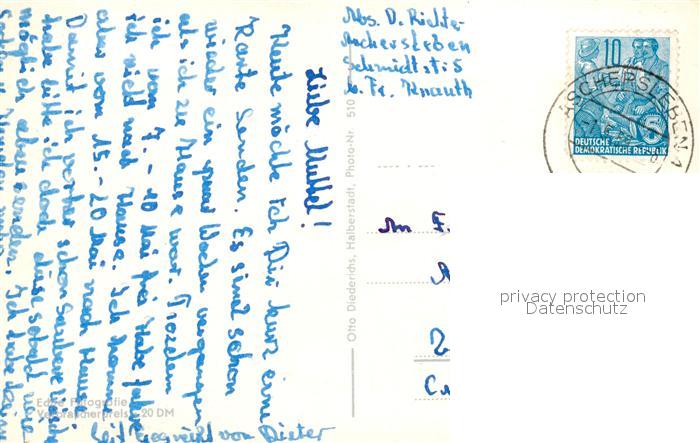 Abs. D. Richter
Aschersleben
Schmidtstr. 5
b. Fr. Knauth
10
DEUTSCHE
DEMOKRATISCHE REPUBLIK
5
ASCHERSLEBEN 1
Liebe Muttel!
Heute möchte ich Dir kurz eine
Karte senden. Es sind schon
wieder ein paar Wochen vergangen
als ich zu Hause war. Trozdem
ich vom 7. - 10 Mai frei habe fahre
ich nicht nach Hause. Ich komme
aber vom 15. - 20 Mai nach Hause.
Damit ich vorher schon saubere Wäsche
habe bitte ich doch diese sobald wie
möglich abzusenden. Ich habe kein
Sei gegrüßt von Dieter
Otto Diederichs, Halberstadt, Photo-Nr. 510
An F
A
Z
Ca
privacy protection
Datenschutz
Echte Fotografie
Verbraucherpreis -,20 DM